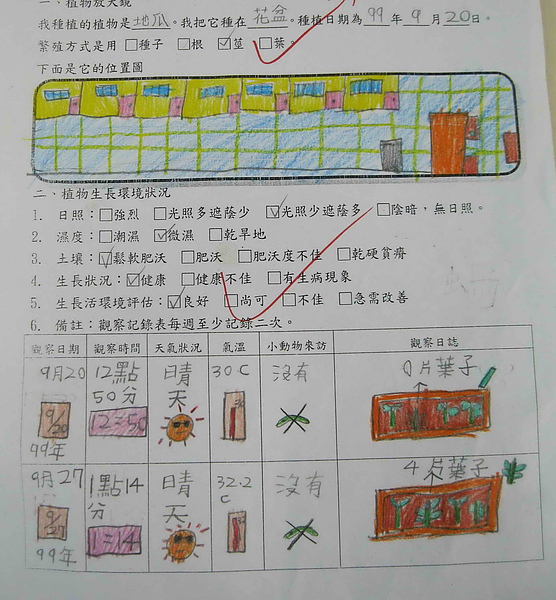 一、植物放大鏡
我種植的植物是地瓜。我把它種在花盆。種植日期為99年9月20日。
繁殖方式是用□種子 □根 ☑莖 □葉。
下面是它的位置圖
二、植物生長環境狀況
1. 日照：□強烈 □光照多遮蔭少 ☑光照少遮蔭多 □陰暗，無日照。
2. 濕度：□潮濕 ☑微濕 □乾旱地
3. 土壤：☑鬆軟肥沃 □肥沃 □肥沃度不佳 □乾硬貧瘠
4. 生長狀況：☑健康 □健康不佳 □有生病現象
5. 生長活環境評估：☑良好 □尚可 □不佳 □急需改善
6. 備註：觀察記錄表每週至少記錄二次。
觀察日期 觀察時間 天氣狀況 氣溫 小動物來訪 觀察日誌
9月20 12點50分 晴天 30C 沒有 0片葉子
9/20 12:50 30
99年
9月27 1點14分 晴天 32.2C 沒有 4片葉子
9/27 1:14
99年